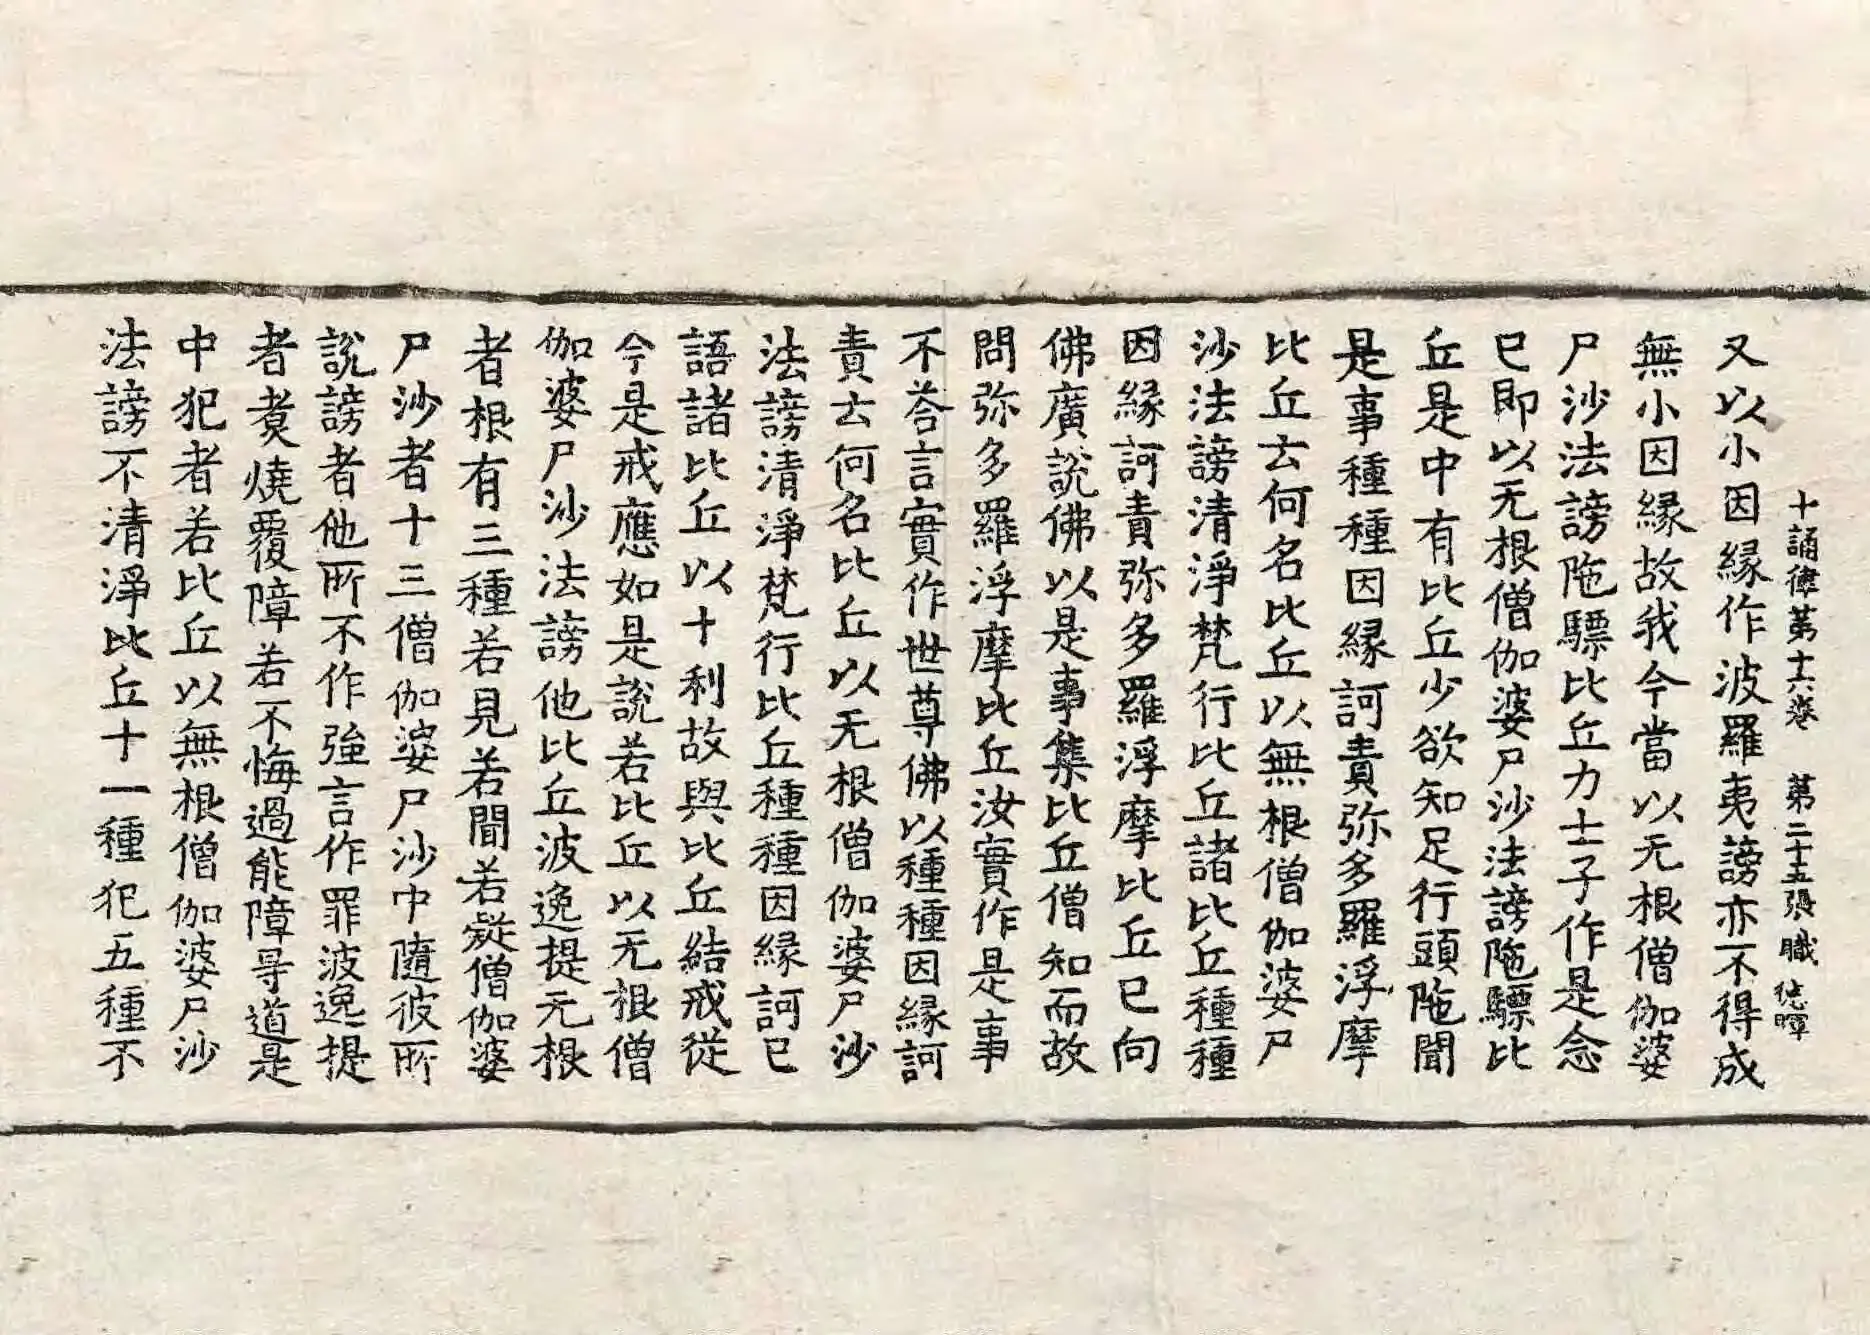 十誦律第十六卷　第二十五張　職　徳暉
又以小因縁作波羅夷謗亦不得成
無小因縁故我今當以无根僧伽婆
尸沙法謗陁驃比丘力士子作是念
已即以无根僧伽婆尸沙法謗陁驃比
丘是中有比丘少欲知足行頭陁聞
是事種種因縁訶責弥多羅浮摩
比丘云何名比丘以無根僧伽婆尸
沙法謗清淨梵行比丘諸比丘種種
因縁訶責弥多羅浮摩比丘已向
佛廣說佛以是事集比丘僧知而故
問弥多羅浮摩比丘汝實作是事
不荅言實作世尊佛以種種因縁訶
責云何名比丘以无根僧伽婆尸沙
法謗清淨梵行比丘種種因縁訶已
語諸比丘以十利故與比丘結戒從
今是戒應如是說若比丘以无根僧
伽婆尸沙法謗他比丘波逸提无根
者根有三種若見若聞若疑僧伽婆
尸沙者十三僧伽婆尸沙中隨彼所
說謗者他所不作強言作罪波逸提
者煑燒覆障若不悔過能障㝵道是
中犯者若比丘以無根僧伽婆尸沙
法謗不清淨比丘十一種犯五種不